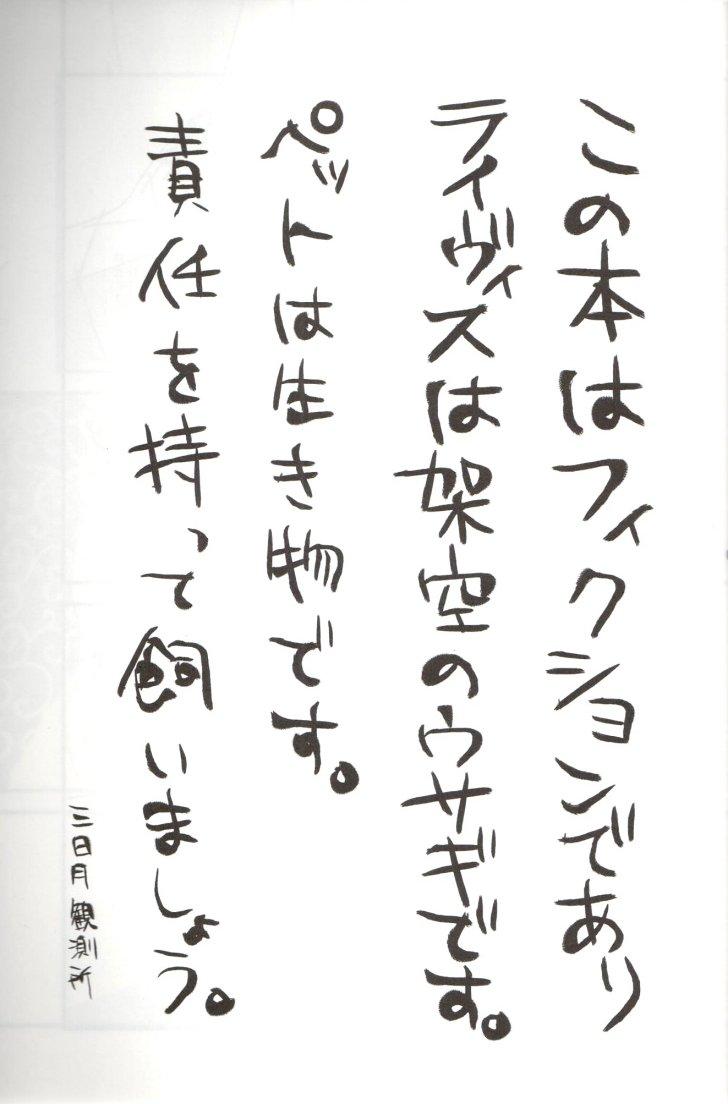 この本はフィクションであり
ライヴィスは架空のウサギです。
ペットは生き物です。
責任を持って飼いましょう。
三日月観測所